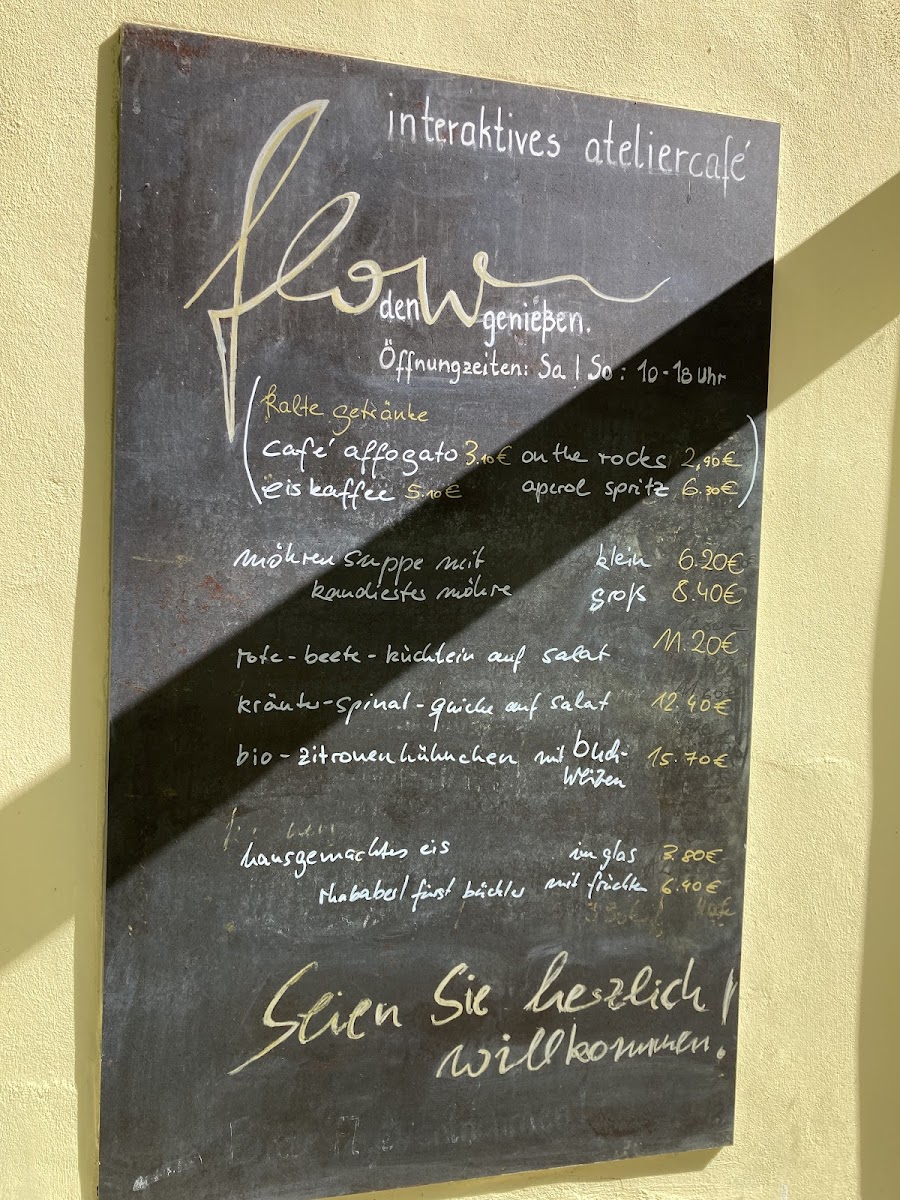 interaktives ateliercafé
flow
den genießen.
Öffnungzeiten: Sa | So : 10-18 Uhr
kalte getränke
café affogato 3.10€ on the rocks 2,90€
eiskaffee 5.10€ aperol spritz 6.30€
möhrensuppe mit klein 6.20€
kandiertes möhre groß 8.40€
rote-beete-küchlein auf salat 11.20€
kräuter-spinat-quiche auf salat 12.40€
bio-zitronenhühnchen mit buch- 15.70€
weizen
hausgemachtes eis im glas 3.80€
rhababer/ fürst bückler mit früchten 6.90€
Seien Sie herzlich
willkommen!